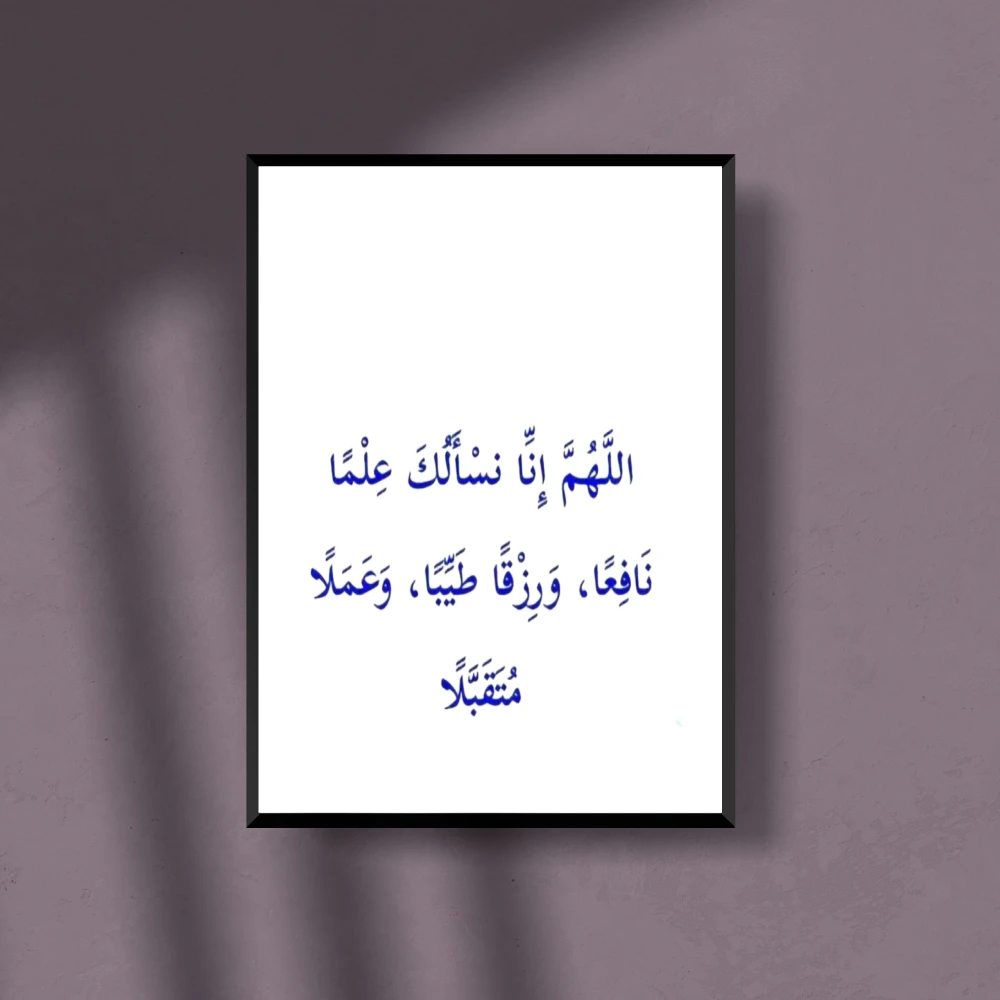 اللَّهُمَّ إِنِّا نسْأَلُكَ عِلْمًا
نَافِعًا، وَرِزْقًا طَيِّبًا، وَعَمَلًا
مُتَقَبَّلًا